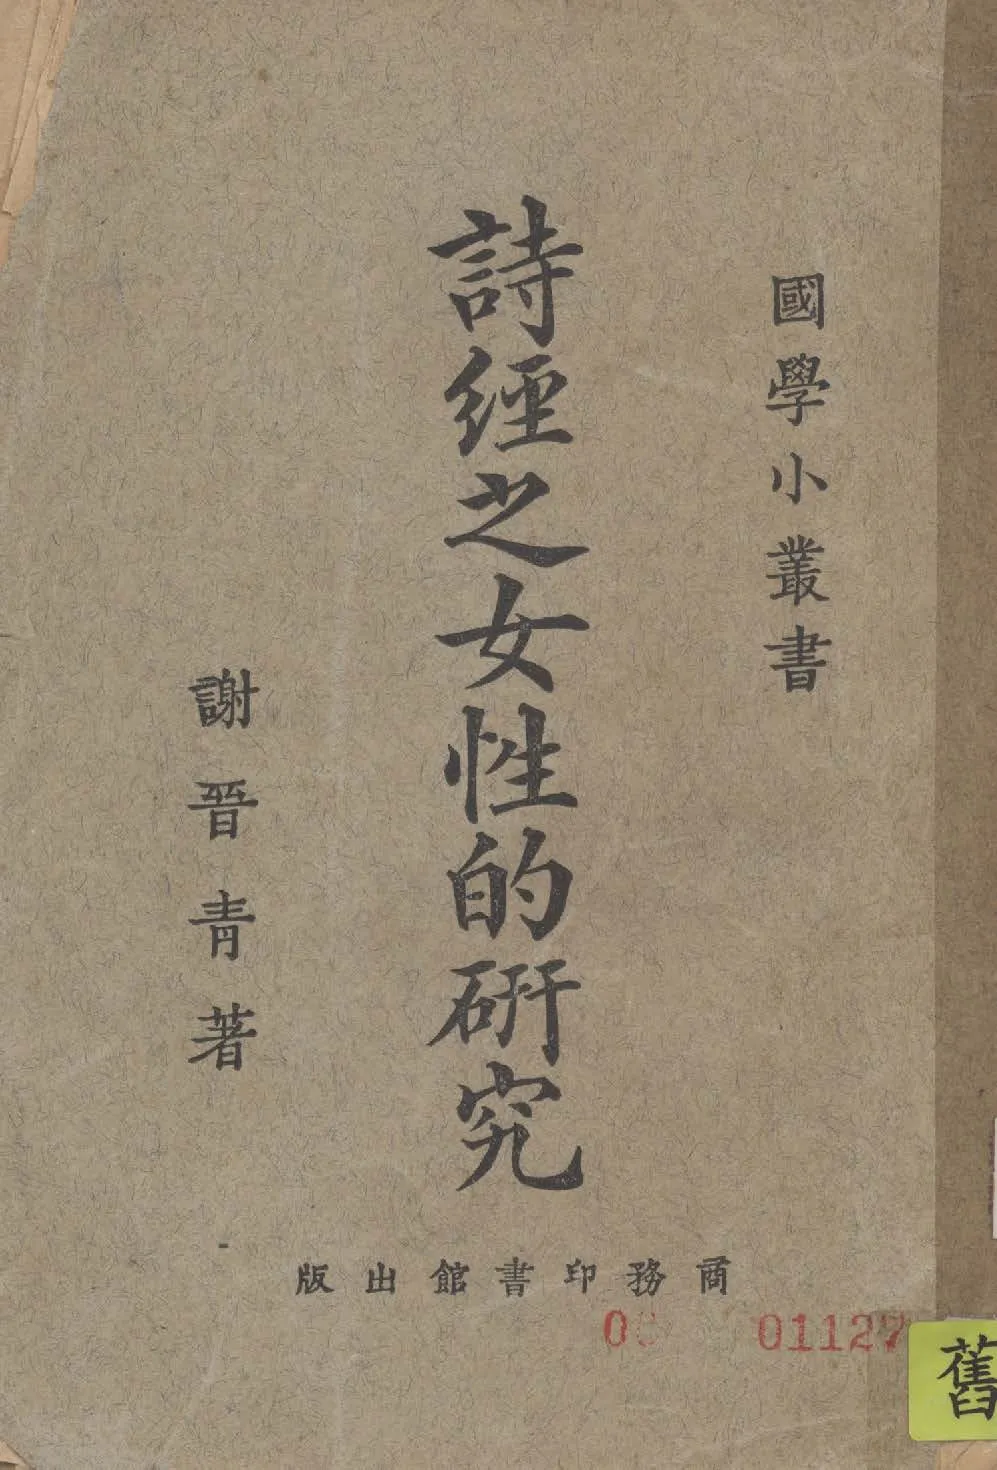 國學小叢書
詩經之女性的研究
謝晉青著
商務印書館出版
01127
舊